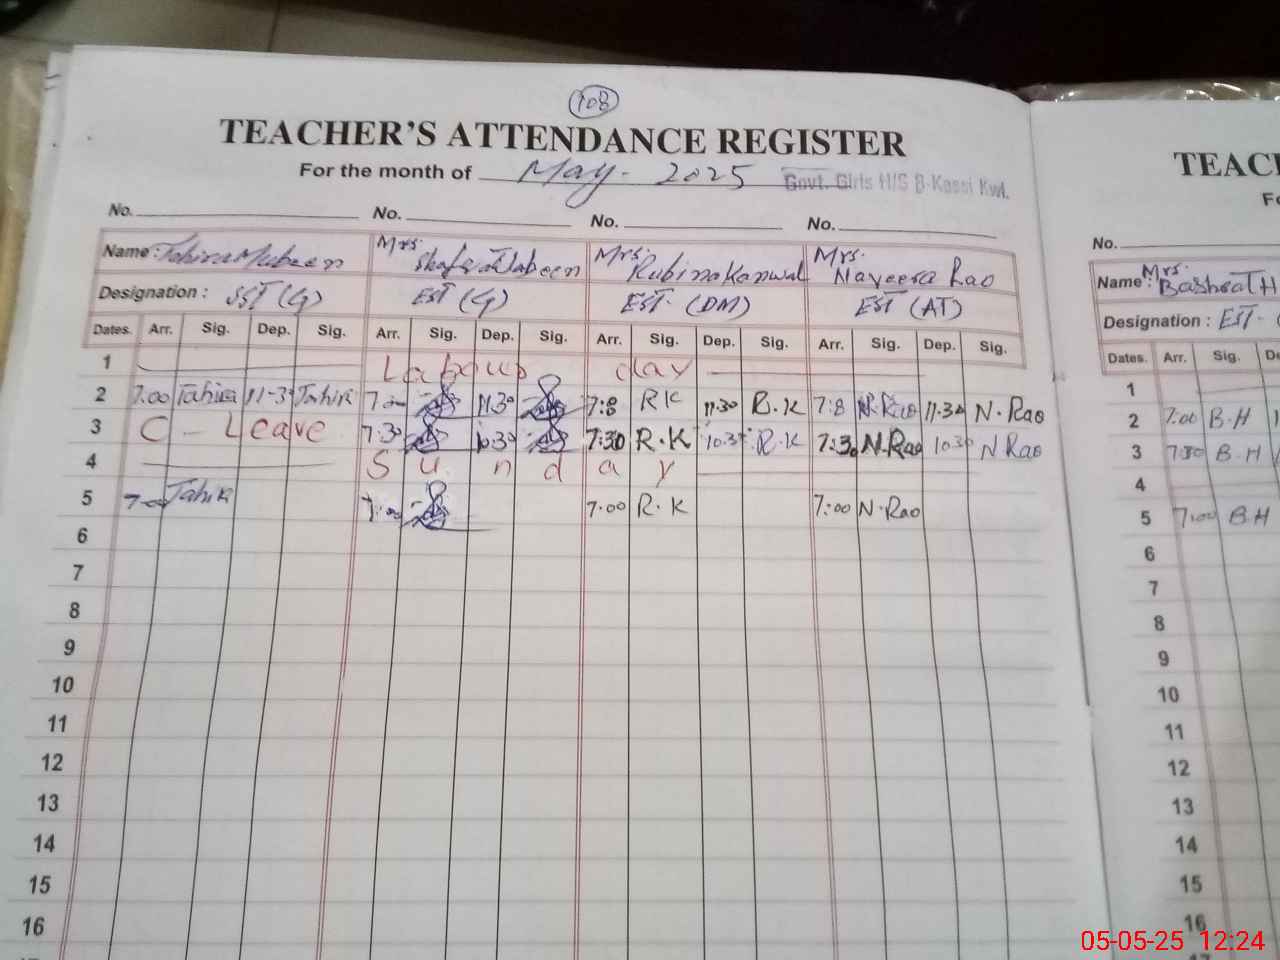 108
TEACHER'S ATTENDANCE REGISTER
For the month of May - 2025 Govt. Girls H/S B-Kassi Kwl.
No. No. No. No.
Name: Tahira Mubeen Mrs. Jabeen Mrs. Rubina Kanwal Mrs. Nayeera Rao
Designation: SST (G) EST (G) EST (DM) EST (AT)
Dates. Arr. Sig. Dep. Sig. Arr. Sig. Dep. Sig. Arr. Sig. Dep. Sig. Arr. Sig. Dep. Sig.
1 Labour day
2 7.00 Tahira 11-30 Tahira 7:00 11:30 7:8 RK 11:30 R.K 7:8 N.Rao 11:30 N.Rao
3 C - Leave 7:30 10:30 7:30 R.K 10:30 R.K 7:30 N.Rao 10:30 N Rao
4 Sunday
5 7:00 Tahir 7:00 7:00 R.K 7:00 N.Rao
6
7
8
9
10
11
12
13
14
15
16
TEAC
No.
Name: Mrs. Basharat H
Designation: EST-
Dates. Arr. Sig. D
1
2 7:00 B.H
3 7:30 B.H
4
5 7:00 B.H
6
7
8
9
10
11
12
13
14
15
16
05-05-25 12:24